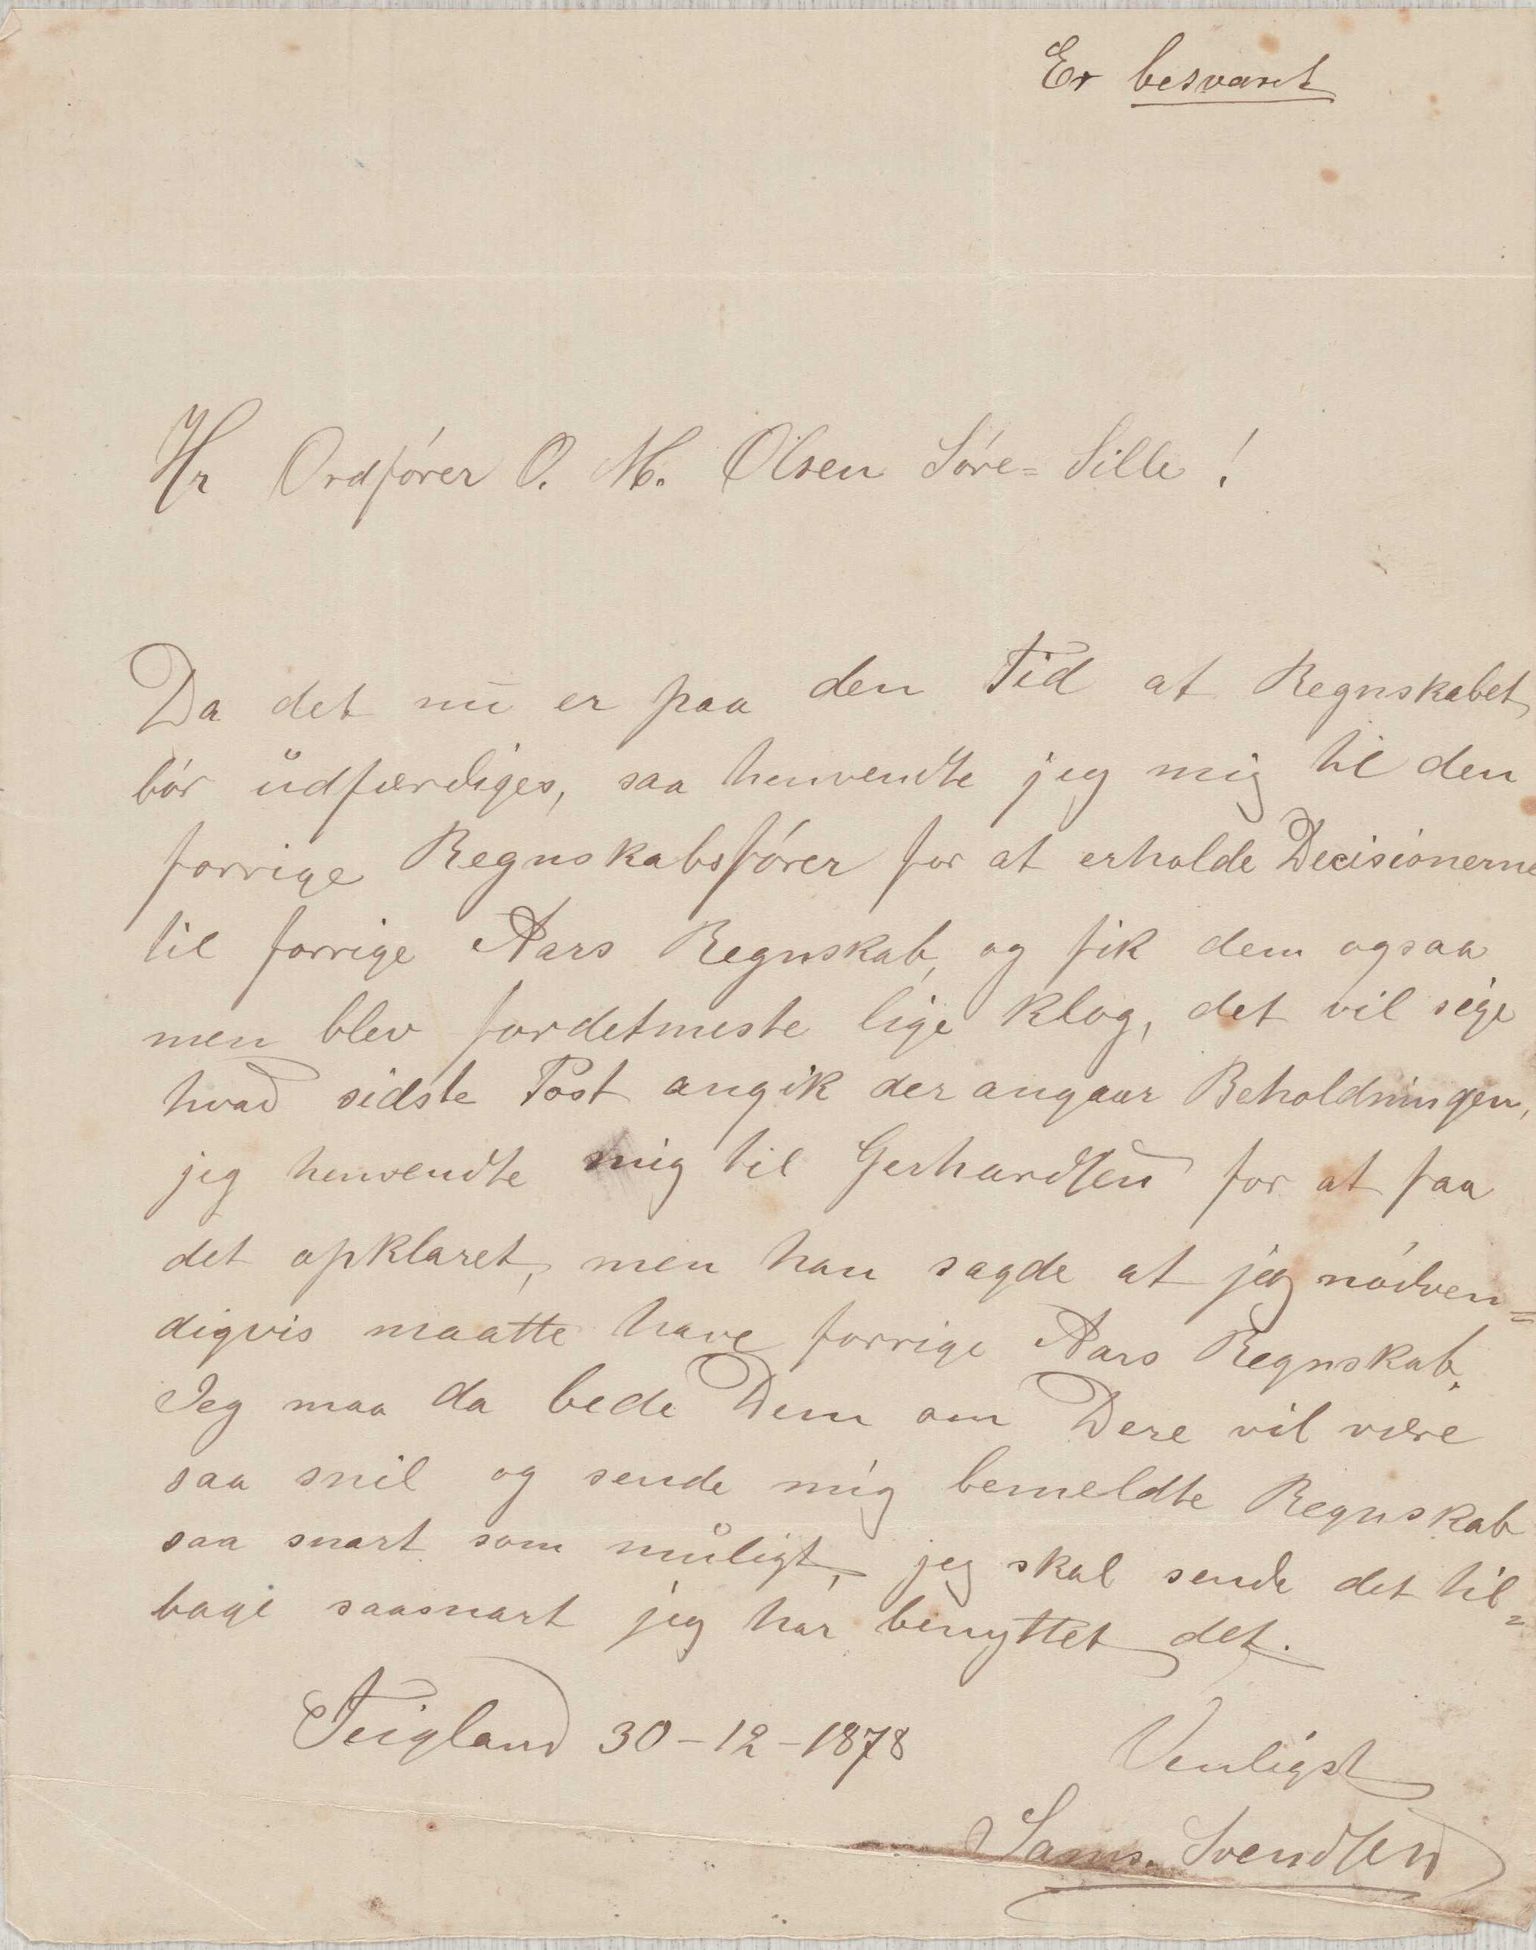 Er besvaret
Hr Ordfører O. M. Olsen Søre=Sille!
Da det nu er paa den Tid at Regnskabet
bør udfærdiges, saa henvendte jeg mig til den
forrige Regnskabsfører for at erholde Decisionerne
til forrige Aars Regnskab, og fik dem ogsaa
men blev fordetmeste lige klog, det vil sige
hvad sidste Post angik der angaar Beholdningen,
jeg henvendte mig til Gerhardsen for at faa
det opklaret, men han sagde at jeg nødven=
digvis maatte have forrige Aars Regnskab.
Jeg maa da bede Dem om Dere vil være
saa snil og sende mig bemeldte Regnskab
saa snart som muligt, jeg skal sende det til=
bage saasnart jeg har benyttet det.
Teigland 30-12-1878
Venligst
Sams. Svendsen